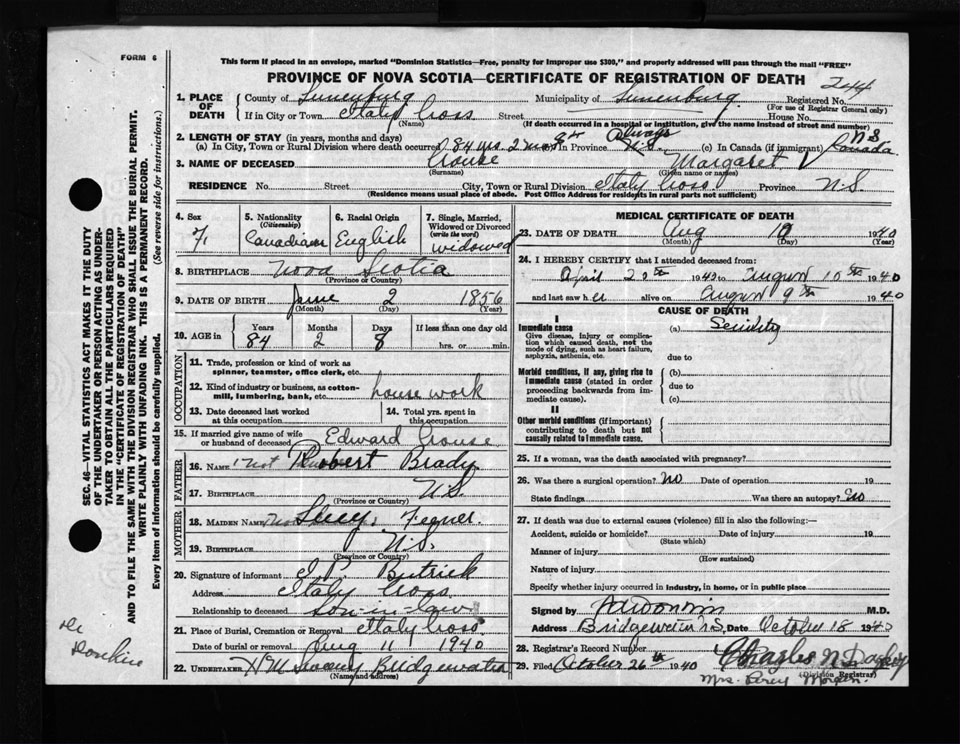 FORM 6
This form if placed in an envelope, marked "Dominion Statistics—Free, penalty for improper use $300," and properly addressed will pass through the mail "FREE"
PROVINCE OF NOVA SCOTIA—CERTIFICATE OF REGISTRATION OF DEATH
244
1. PLACE OF DEATH
County of Lunenburg Municipality of Lunenburg Registered No.
(For use of Registrar General only)
If in City or Town Italy Cross Street House No.
(Name) (If death occurred in a hospital or institution, give the name instead of street and number)
2. LENGTH OF STAY (in years, months and days) Always N S
(a) In City, Town or Rural Division where death occurred 84 yrs 2 mos (b) In Province N.S. (c) In Canada (if immigrant) Canada
3. NAME OF DECEASED Crouse Margaret
(Surname) (Given name or names)
RESIDENCE No. Street City, Town or Rural Division Italy Cross Province N.S.
(Residence means usual place of abode. Post Office Address for residents in rural parts not sufficient)
4. Sex F.
5. Nationality (Citizenship) Canadian
6. Racial Origin English
7. Single, Married, Widowed or Divorced (write the word) widowed
8. BIRTHPLACE Nova Scotia
(Province or Country)
9. DATE OF BIRTH June 2 1856
(Month) (Day) (Year)
10. AGE in Years Months Days If less than one day old
84 2 8 hrs. or min.
OCCUPATION
11. Trade, profession or kind of work as spinner, teamster, office clerk, etc.
12. Kind of industry or business, as cotton-mill, lumbering, bank, etc. house work
13. Date deceased last worked at this occupation
14. Total yrs. spent in this occupation
15. If married give name of wife or husband of deceased Edward Crouse
FATHER
16. Name Robert Brady
17. Birthplace N.S.
(Province or Country)
MOTHER
18. Maiden Name Lucy Fegner.
19. Birthplace N.S.
(Province or Country)
20. Signature of informant Butrick
Address Italy Cross
Relationship to deceased son-in-law
21. Place of Burial, Cremation or Removal Italy Cross
Date of burial or removal Aug 11 1940
22. UNDERTAKER Bridgewater
(Name and address)
MEDICAL CERTIFICATE OF DEATH
23. DATE OF DEATH Aug 10 1940
(Month) (Day) (Year)
24. I HEREBY CERTIFY that I attended deceased from:
April 20th 1940 to August 10th 1940
and last saw her alive on August 9th 1940
CAUSE OF DEATH
I
Immediate cause (a) Senility
Give disease, injury or complication which caused death, not the mode of dying, such as heart failure, asphyxia, asthenia, etc.
due to
Morbid conditions, if any, giving rise to immediate cause (stated in order proceeding backwards from immediate cause).
(b)
due to
(c)
II
Other morbid conditions (if important) contributing to death but not causally related to immediate cause.
25. If a woman, was the death associated with pregnancy?
26. Was there a surgical operation? no Date of operation 19
State findings Was there an autopsy? no
27. If death was due to external causes (violence) fill in also the following:—
Accident, suicide or homicide? Date of injury 19
(State which)
Manner of injury
(How sustained)
Nature of injury
Specify whether injury occurred in industry, in home, or in public place
Signed by M.D.
Address Bridgewater N.S. Date October 18 1940
28. Registrar's Record Number
29. Filed October 26th 1940 Charles N. Dagley
(Division Registrar)
Mrs. Percy
SEC. 46—VITAL STATISTICS ACT MAKES IT THE DUTY
OF THE UNDERTAKER OR PERSON ACTING AS UNDER-
TAKER TO OBTAIN ALL THE PARTICULARS REQUIRED
IN THE "CERTIFICATE OF REGISTRATION OF DEATH"
AND TO FILE THE SAME WITH THE DIVISION REGISTRAR WHO SHALL ISSUE THE BURIAL PERMIT.
WRITE PLAINLY WITH UNFADING INK. THIS IS A PERMANENT RECORD.
Every item of information should be carefully supplied. (See reverse side for instructions.)
Dr
Donkin